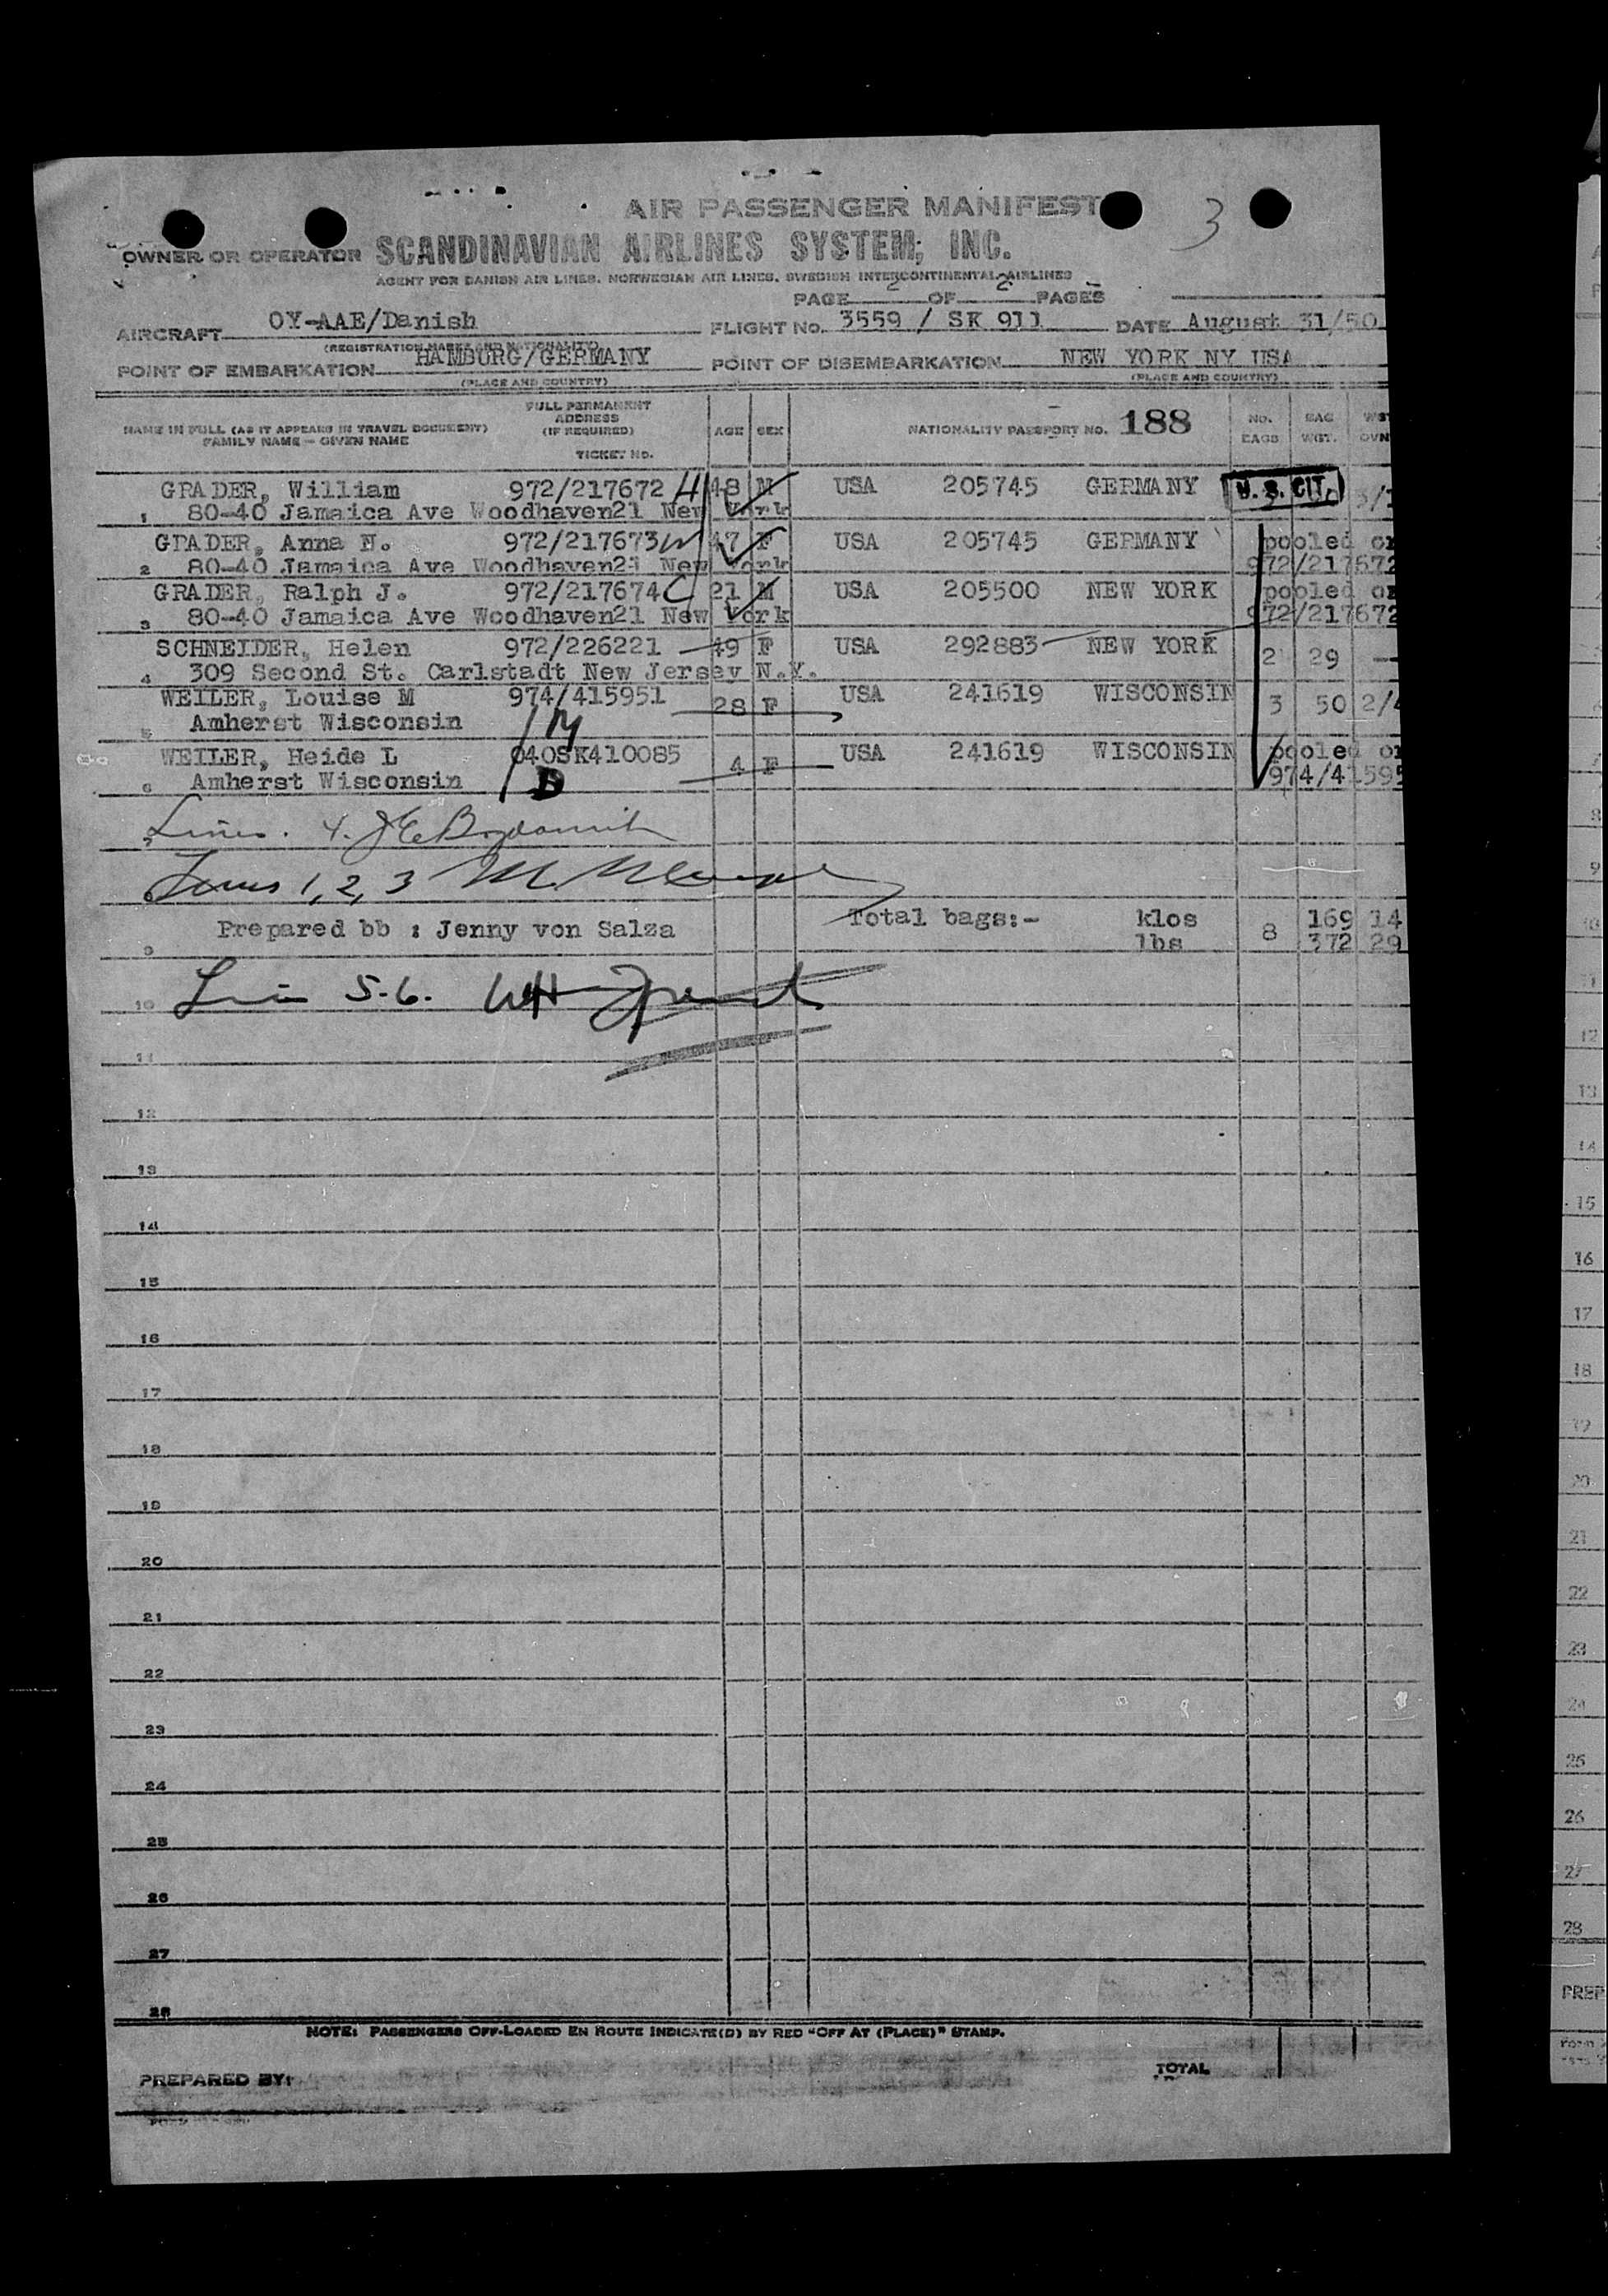 AIR PASSENGER MANIFEST
3
OWNER OR OPERATOR SCANDINAVIAN AIRLINES SYSTEM, INC.
AGENT FOR DANISH AIR LINES, NORWEGIAN AIR LINES, SWEDISH INTERCONTINENTAL AIRLINES
PAGE 2 OF 2 PAGES
AIRCRAFT OY-AAE/Danish FLIGHT No. 3559 / SK 911 DATE August 31/50
(REGISTRATION MARKS AND NATIONALITY)
POINT OF EMBARKATION HAMBURG/GERMANY POINT OF DISEMBARKATION NEW YORK NY USA
(PLACE AND COUNTRY) (PLACE AND COUNTRY)
NAME IN FULL (AS IT APPEARS IN TRAVEL DOCUMENT) FAMILY NAME — GIVEN NAME
FULL PERMANENT ADDRESS (IF REQUIRED) TICKET NO.
AGE SEX NATIONALITY PASSPORT NO. 188 NO. BAGS BAG WGT.
GRADER, William 972/217672 H 48 M USA 205745 GERMANY U. S. CIT.
1 80-40 Jamaica Ave Woodhaven21 New York
GRADER, Anna H. 972/217673 W 47 F USA 205745 GERMANY pooled on
2 80-40 Jamaica Ave Woodhaven21 New York 972/217672
GRADER, Ralph J. 972/217674 C 21 M USA 205500 NEW YORK pooled on
3 80-40 Jamaica Ave Woodhaven21 New York 972/217672
SCHNEIDER, Helen 972/226221 49 F USA 292883 NEW YORK 2 29 —
4 309 Second St. Carlstadt New Jersey N.Y.
WEILER, Louise M 974/415951 28 F USA 241619 WISCONSIN 3 50 2/4
5 Amherst Wisconsin M
WEILER, Heide L 040SK410085 4 F USA 241619 WISCONSIN pooled on
6 Amherst Wisconsin D 974/41595
7 Lines. 4.
8 Lines 1, 2, 3 M.
Total bags:- klos 8 169 14
9 Prepared bb : Jenny von Salza lbs 372 29
10 Lin 5-6.
11
12
13
14
15
16
17
18
19
20
21
22
23
24
25
26
27
28
NOTE: PASSENGERS OFF-LOADED EN ROUTE INDICATE(D) BY RED "OFF AT (PLACE)" STAMP.
PREPARED BY: TOTAL
8
9
10
11
12
13
14
15
16
17
18
19
20
21
22
23
24
25
26
27
28
PREP